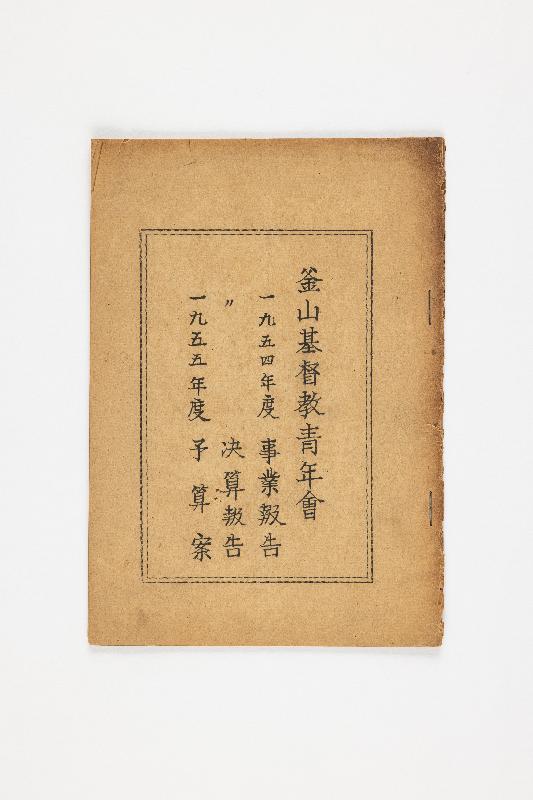 釜山基督教青年會
一九五四年度 事業報告
〃 决算報告
一九五五年度 予算案